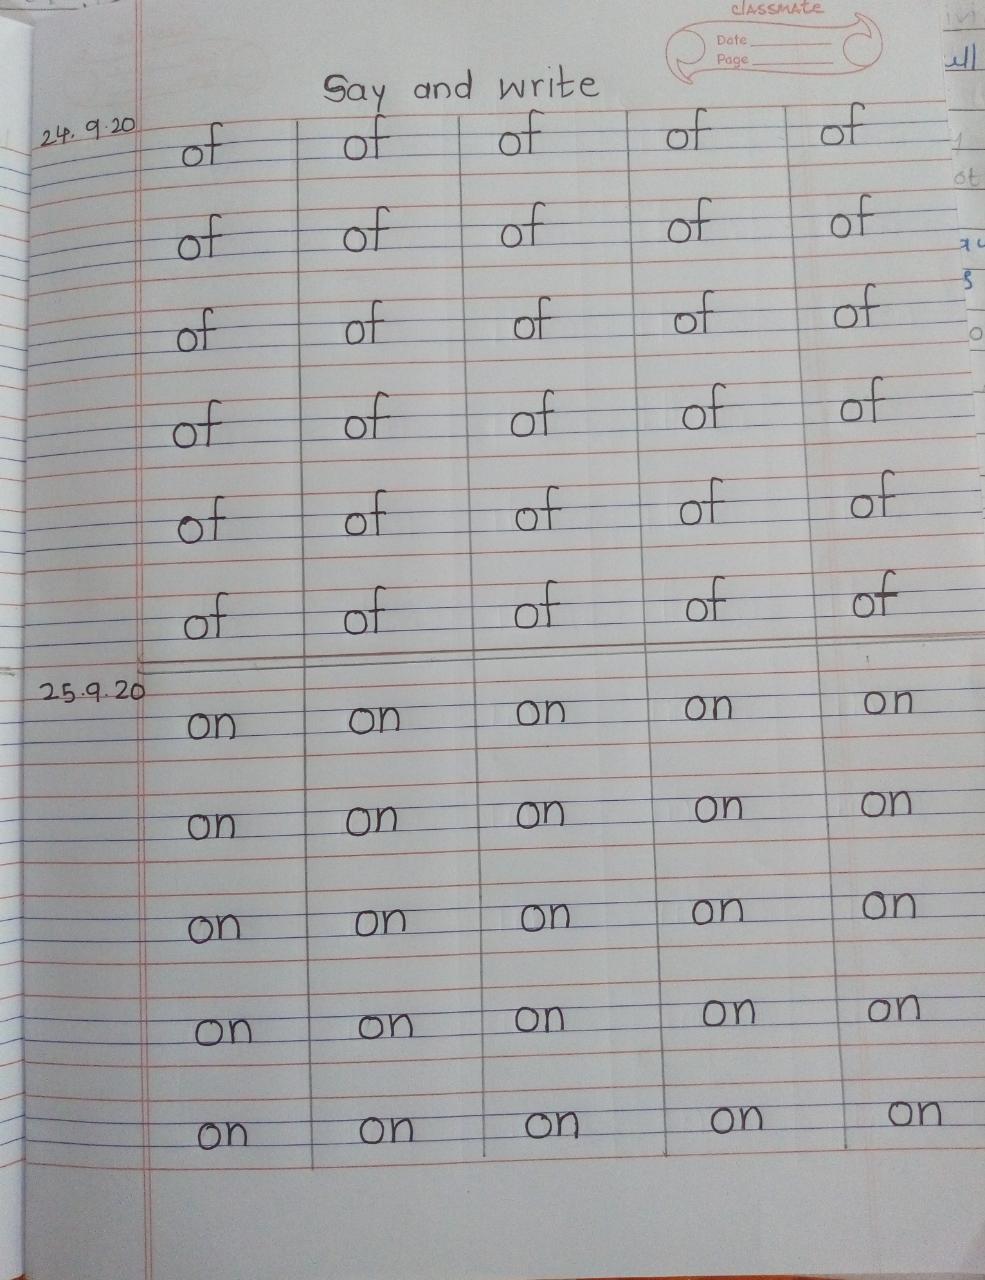 classmate
Date
Page
Say and write
24.9.20 of of of of of
of of of of of
of of of of of
of of of of of
of of of of of
of of of of of
25.9.20 on on on on on
on on on on on
on on on on on
on on on on on
on on on on on